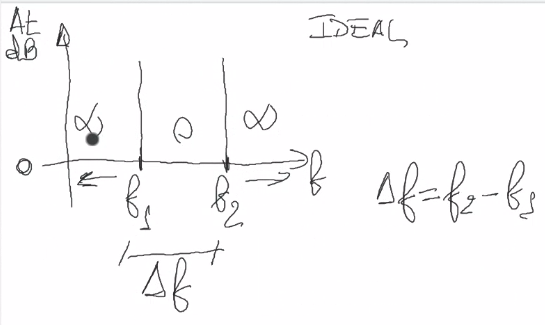 At
dB
IDEAL
∞ 0 ∞
0
f
f1 f2
Δf = f2 - f1
Δf